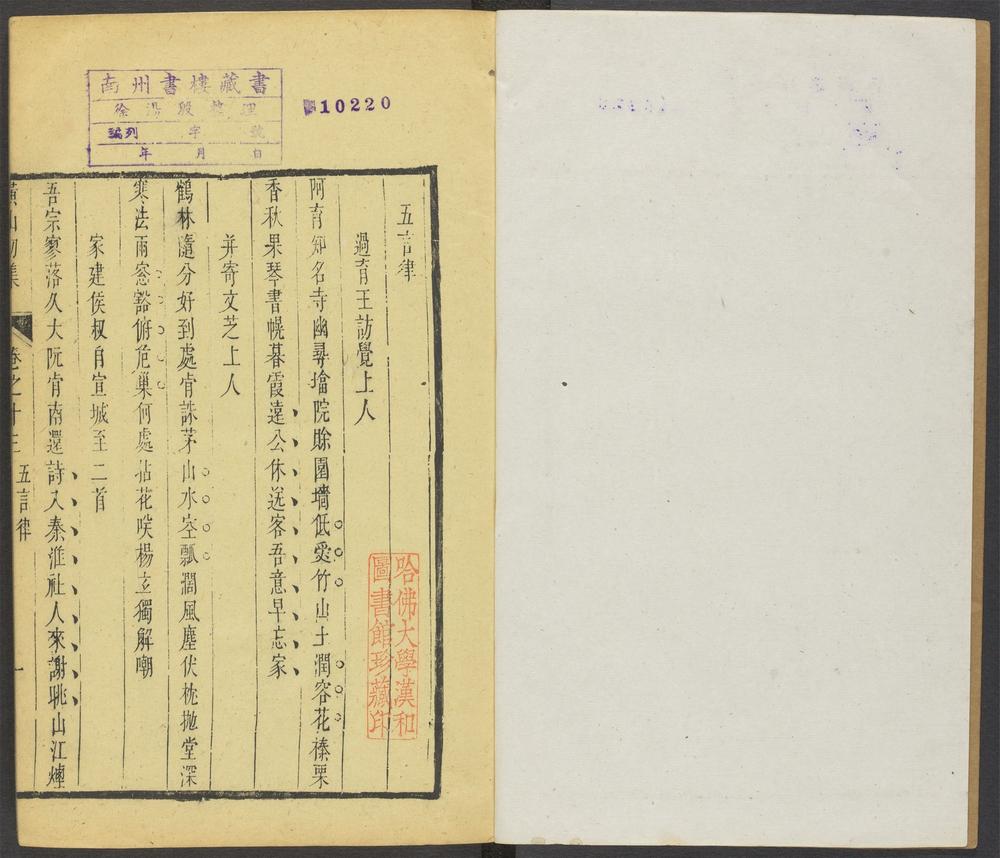 南州書樓藏書
徐湯殷整理
編列 字 號
年 月 日
10220
五言律
過育王訪覺上人
阿育知名寺幽尋墖院賒圍墻低愛竹山土潤容花榛栗
香秋果琴書幌暮霞遠公休送客吾意早忘家
并寄文芝上人
鶴林隨分好到處肯誅茅山水空瓢濶風塵伏枕抛堂深
寒法雨窓豁俯危巢何處拈花笑楊立獨解嘲
家建侯叔自宣城至二首
吾宗寥落久大阮肯南還詩入秦淮社人來謝眺山江
集
卷之十
五言律
一
哈佛大學漢和
圖書館珍藏印